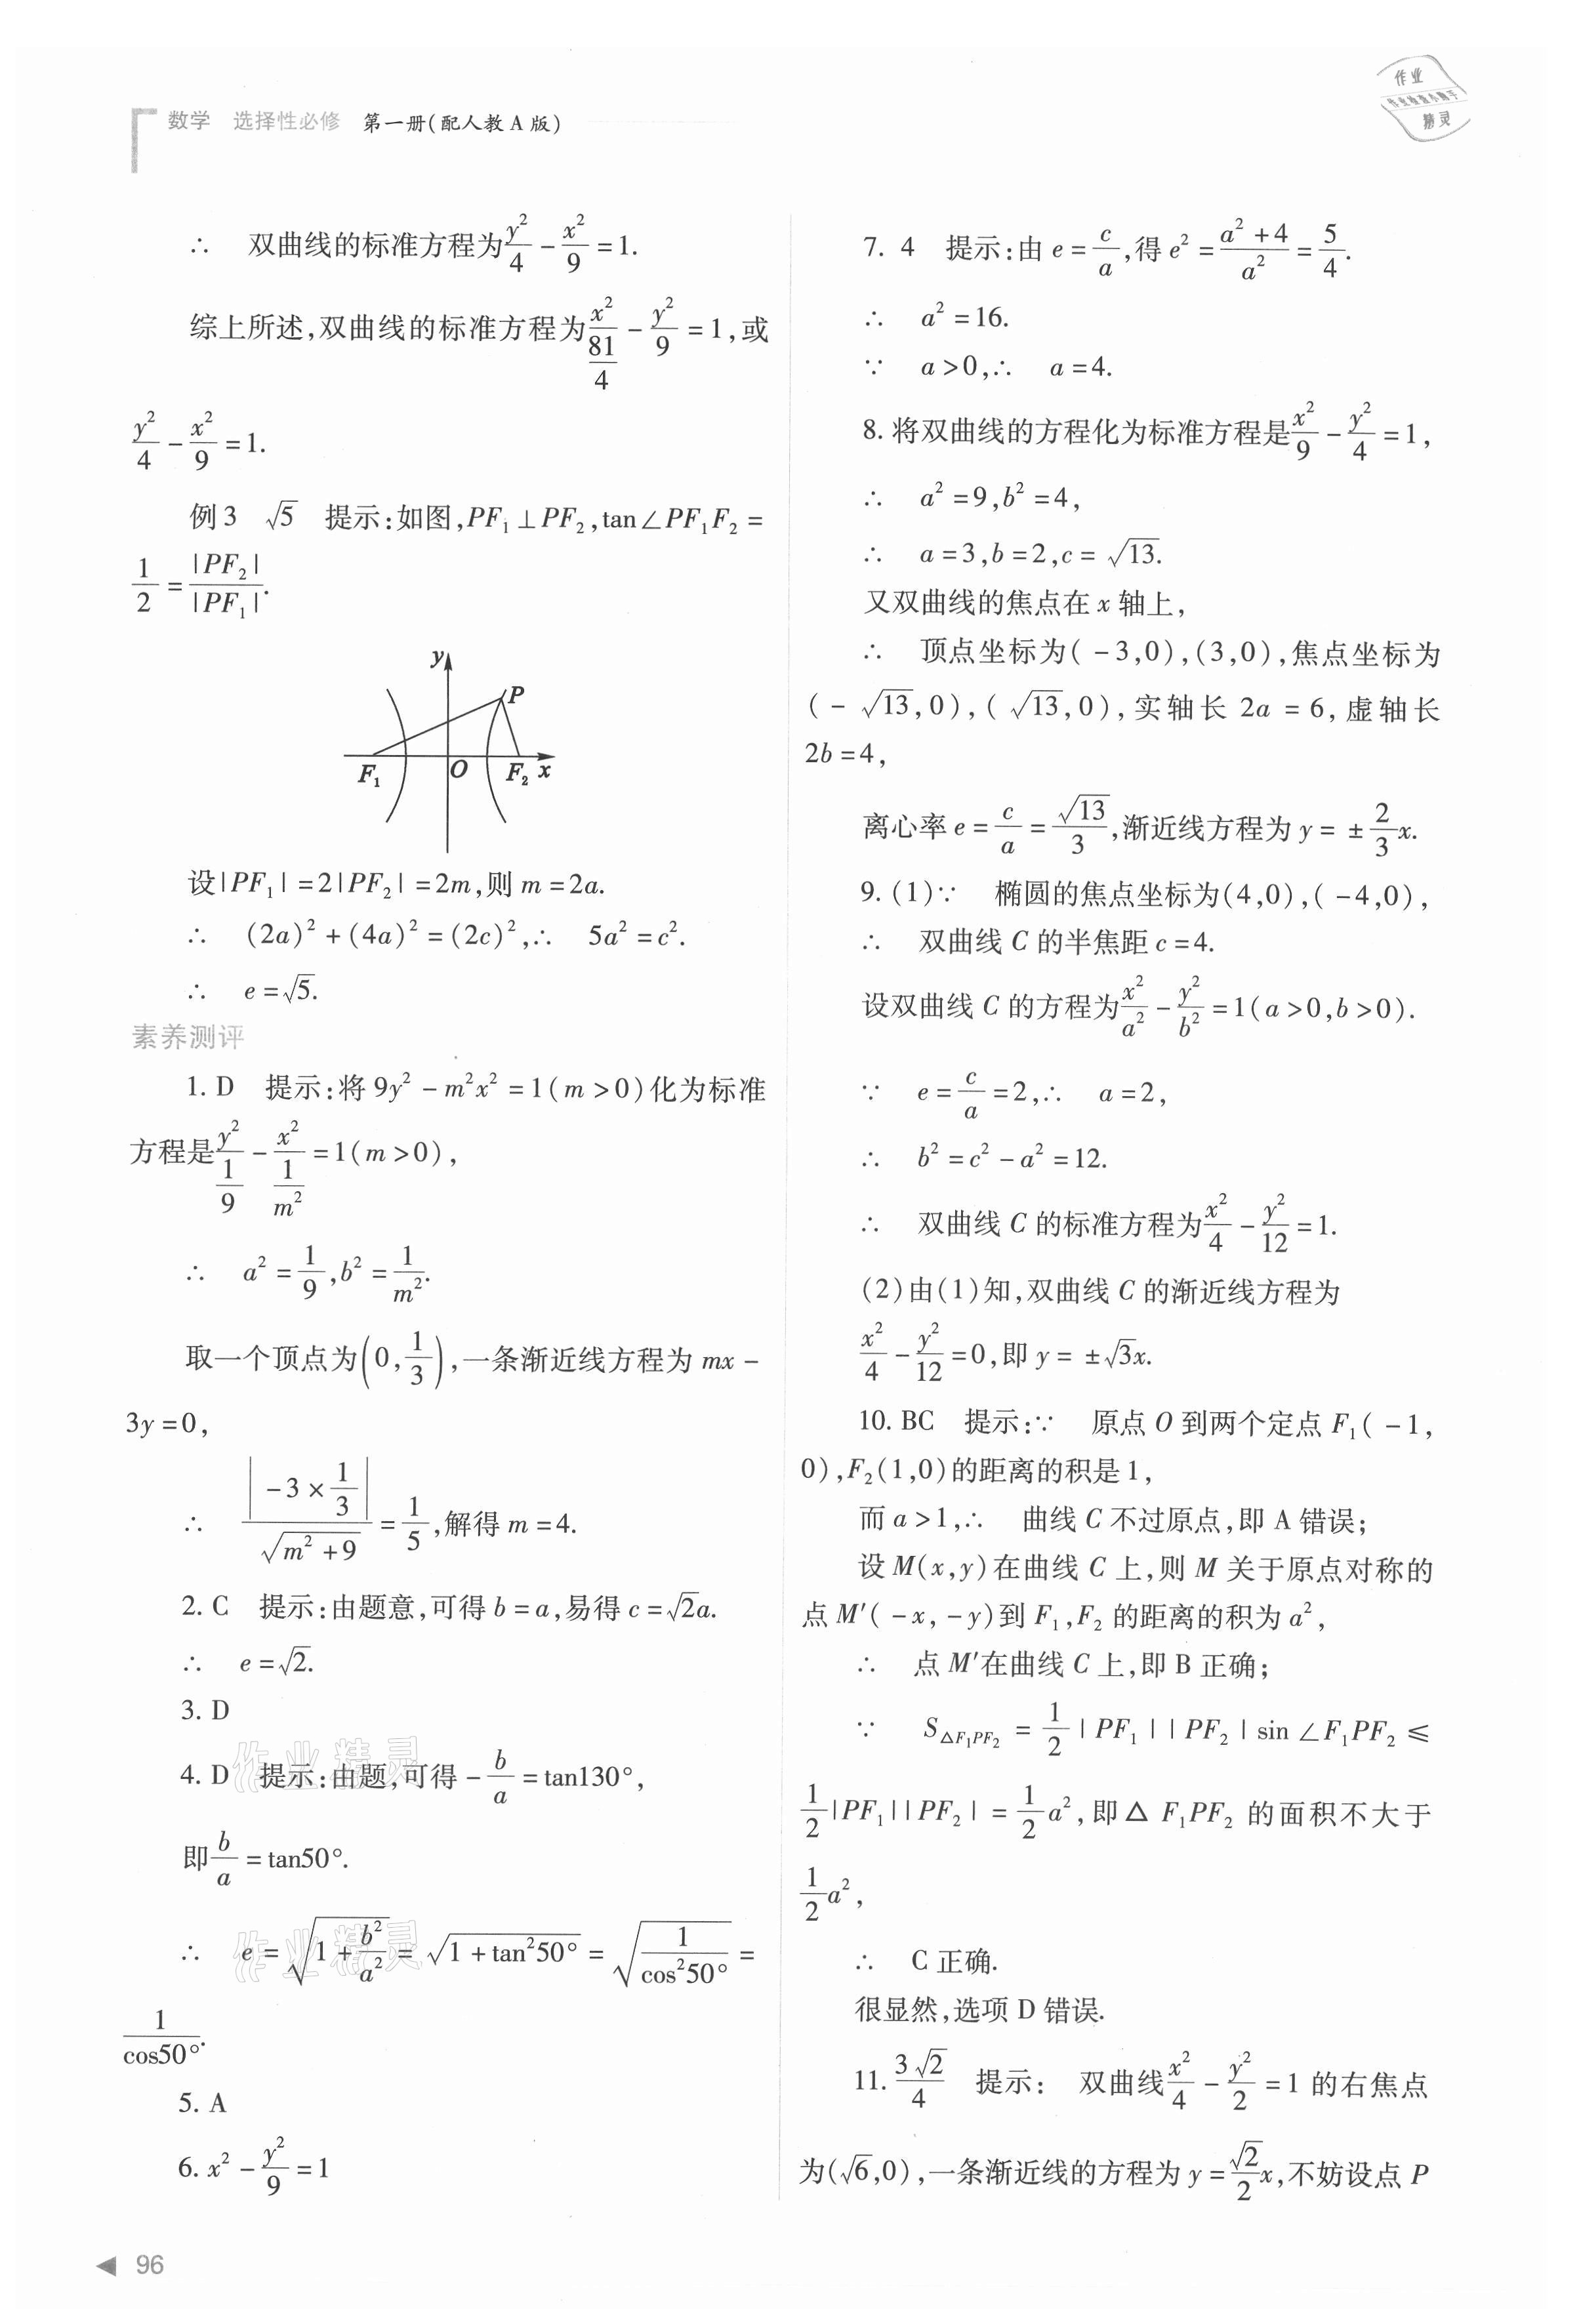 数学 选择性必修 第一册(配人教 A 版)
作业
作业检查小助手
精灵
∴ 双曲线的标准方程为y²/4 - x²/9 = 1.
综上所述,双曲线的标准方程为x²/(81/4) - y²/9 = 1,或
y²/4 - x²/9 = 1.
例 3 √5 提示:如图,PF₁⊥PF₂,tan∠PF₁F₂ =
1/2 = |PF₂|/|PF₁|.
y
P
F₁ O F₂ x
设|PF₁| = 2|PF₂| = 2m,则 m = 2a.
∴ (2a)² + (4a)² = (2c)²,∴ 5a² = c².
∴ e = √5.
素养测评
1. D 提示:将 9y² - m²x² = 1(m > 0)化为标准
方程是y²/(1/9) - x²/(1/m²) = 1(m > 0),
∴ a² = 1/9,b² = 1/m².
取一个顶点为(0,1/3),一条渐近线方程为 mx -
3y = 0,
∴ |-3 × 1/3|/√(m² + 9) = 1/5,解得 m = 4.
2. C 提示:由题意,可得 b = a,易得 c = √2a.
∴ e = √2.
3. D
4. D 提示:由题,可得 - b/a = tan130°,
即b/a = tan50°.
∴ e = √(1 + b²/a²) = √(1 + tan²50°) = √(1/cos²50°) =
1/cos50°.
5. A
6. x² - y²/9 = 1
作业精灵
作业精灵
7. 4 提示:由 e = c/a,得 e² = (a² + 4)/a² = 5/4.
∴ a² = 16.
∵ a > 0,∴ a = 4.
8. 将双曲线的方程化为标准方程是x²/9 - y²/4 = 1,
∴ a² = 9,b² = 4,
∴ a = 3,b = 2,c = √13.
又双曲线的焦点在 x 轴上,
∴ 顶点坐标为( - 3,0),(3,0),焦点坐标为
( - √13,0),(√13,0),实轴长 2a = 6,虚轴长
2b = 4,
离心率 e = c/a = √13/3,渐近线方程为 y = ± 2/3 x.
9. (1)∵ 椭圆的焦点坐标为(4,0),( - 4,0),
∴ 双曲线 C 的半焦距 c = 4.
设双曲线 C 的方程为x²/a² - y²/b² = 1(a > 0,b > 0).
∵ e = c/a = 2,∴ a = 2,
∴ b² = c² - a² = 12.
∴ 双曲线 C 的标准方程为x²/4 - y²/12 = 1.
(2)由(1)知,双曲线 C 的渐近线方程为
x²/4 - y²/12 = 0,即 y = ± √3x.
10. BC 提示:∵ 原点 O 到两个定点 F₁( - 1,
0),F₂(1,0)的距离的积是 1,
而 a > 1,∴ 曲线 C 不过原点,即 A 错误;
设 M(x,y)在曲线 C 上,则 M 关于原点对称的
点 M′( - x, - y)到 F₁,F₂ 的距离的积为 a²,
∴ 点 M′在曲线 C 上,即 B 正确;
∵ S△F₁PF₂ = 1/2 |PF₁||PF₂|sin∠F₁PF₂ ≤
1/2|PF₁||PF₂| = 1/2 a²,即△F₁PF₂ 的面积不大于
1/2 a²,
∴ C 正确.
很显然,选项 D 错误.
11. 3√2/4 提示: 双曲线x²/4 - y²/2 = 1 的右焦点
为(√6,0),一条渐近线的方程为 y = √2/2 x,不妨设点 P
◀ 96